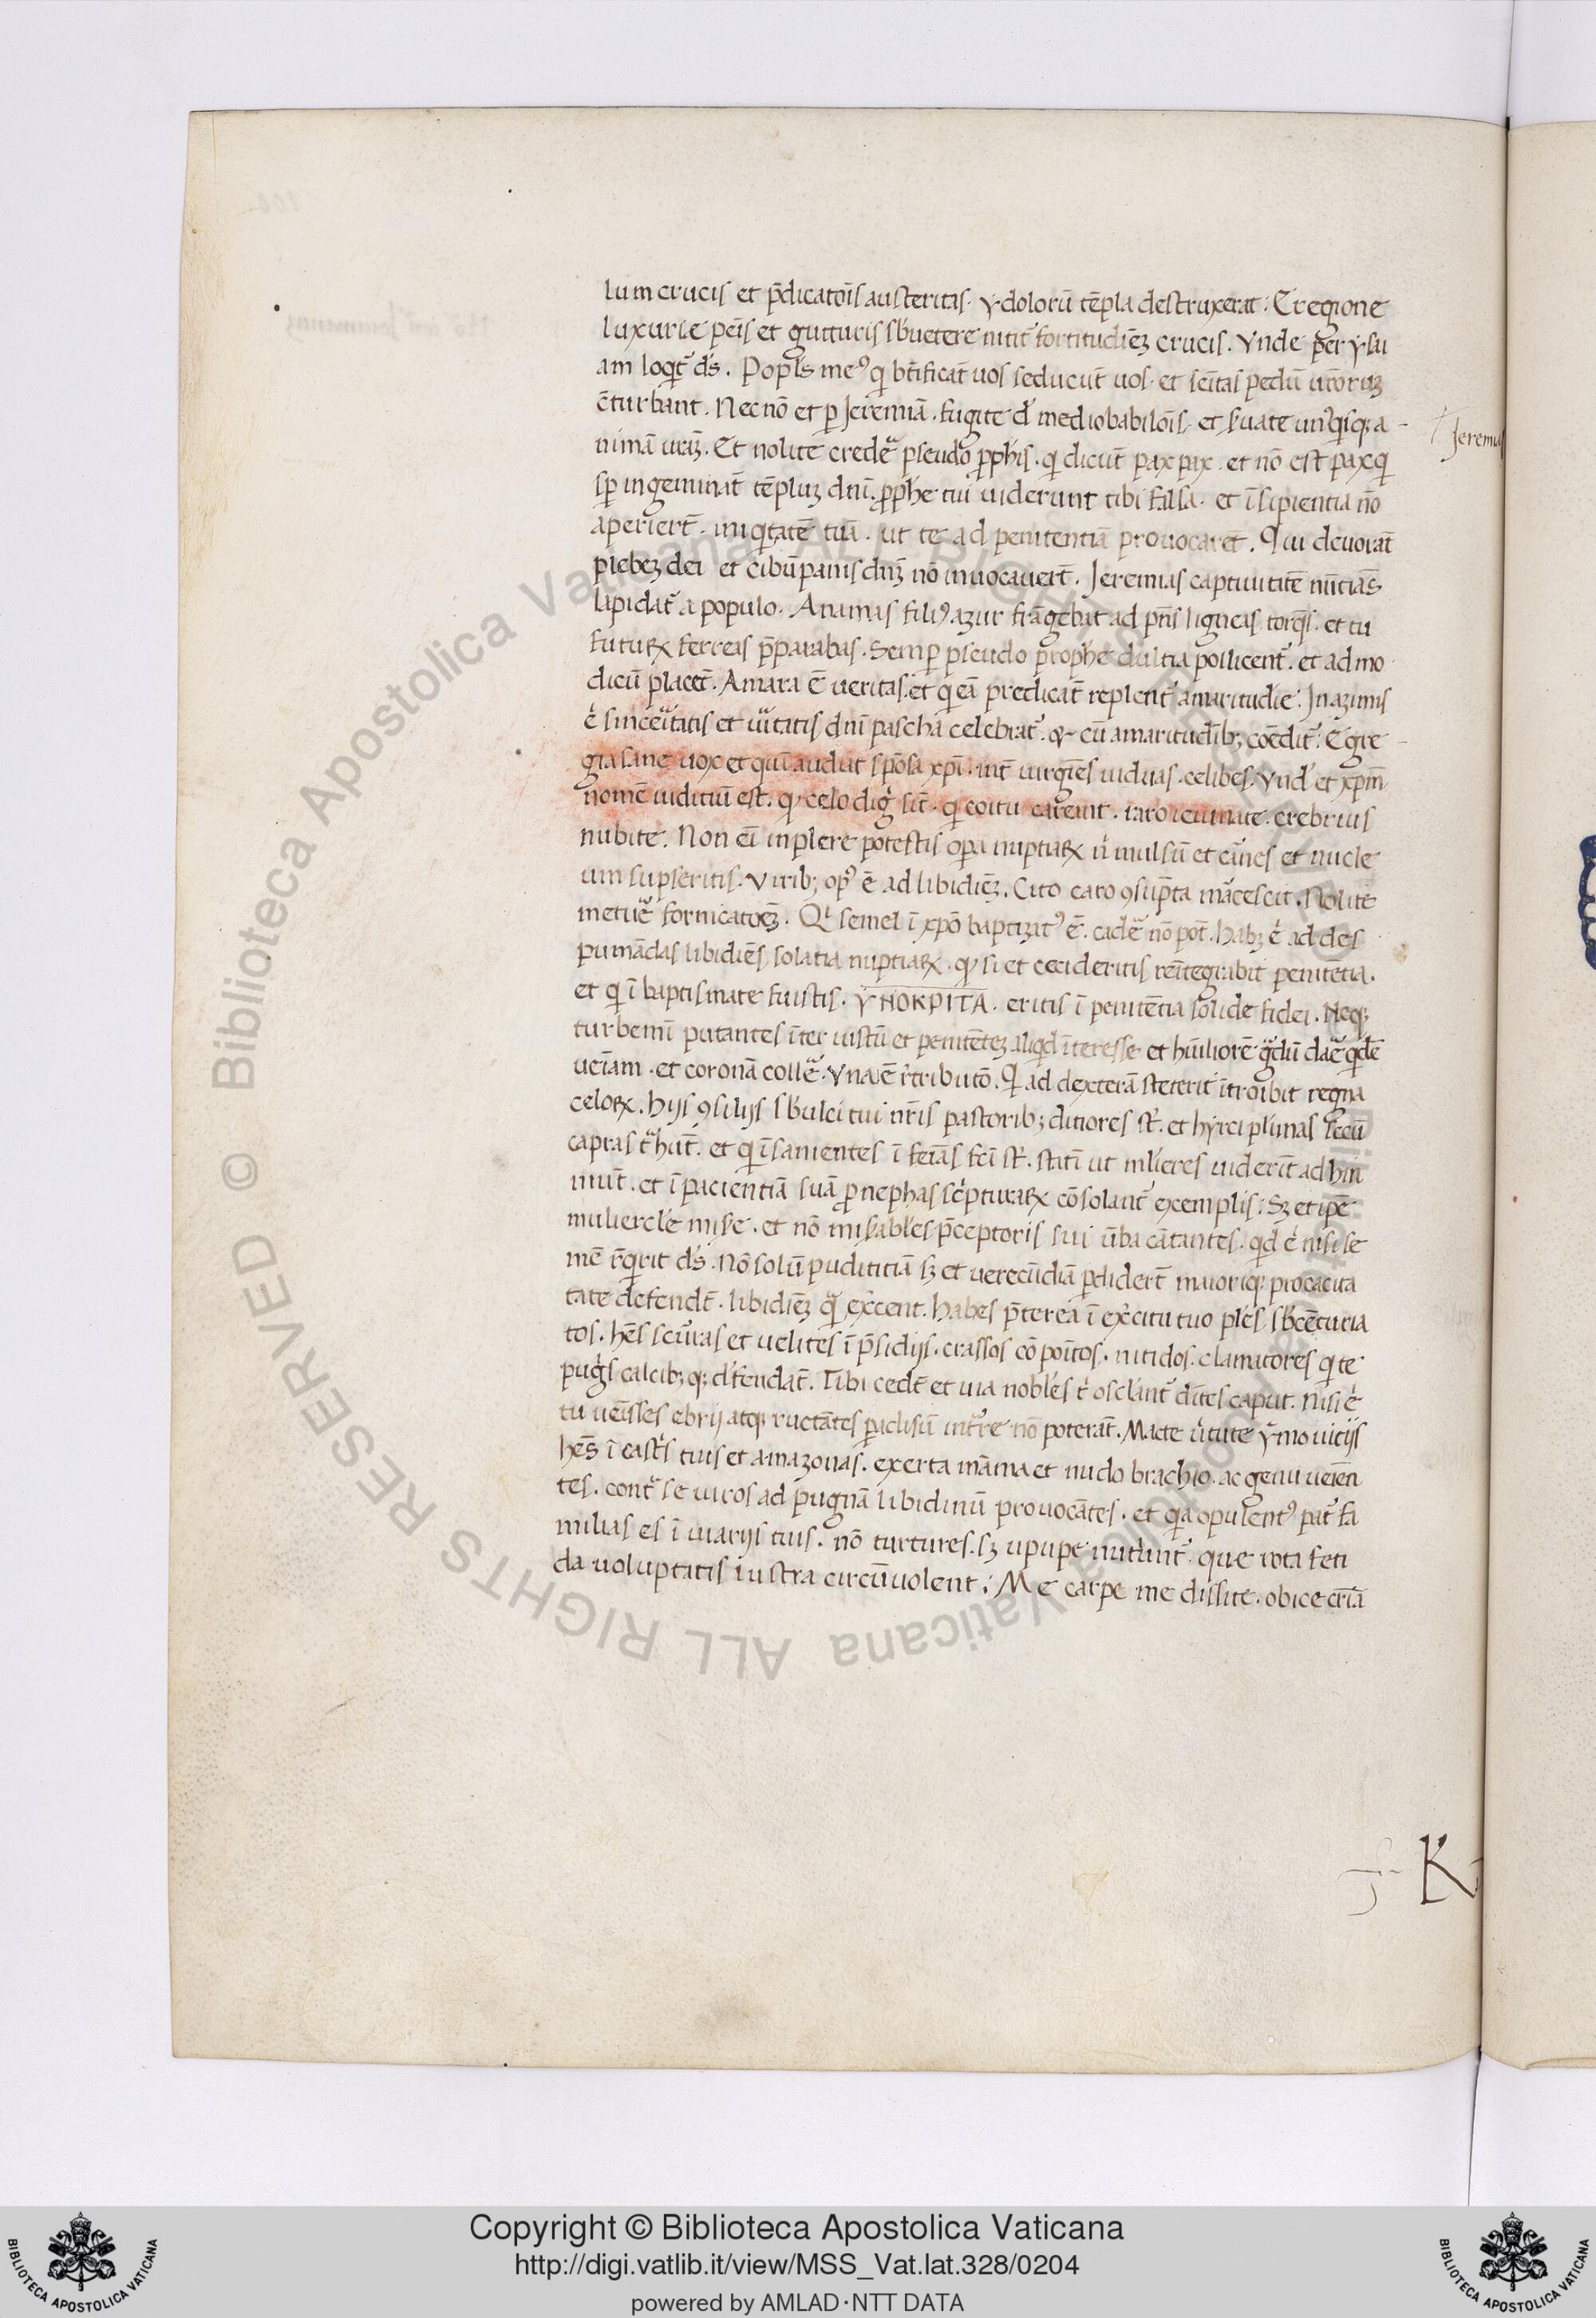 lum crucis et p̄dicatoīs austeritas. ydolorū tēpla destruxerat: E regione
luxurie peīs et gutturis s̄buetere nitit̄ fortitudiēʒ crucis. Vnde per ysa
am loqit̄ ds̄. Popls̄ meꝰ qi bt̄ificat̄ uos seducūt uos. et seītas pedū uroruʒ
cturbant. Nec nō et p Jeremiā. fugite d̄ medio babilōis. et s̄uate unꝰqisqꝫ a
nimā uraʒ. Et nolite credeȓ pseudo ꝓphīs. qi dicūt pax pax. et nō est pax qi
sp̄ ingeminat̄ tēpluʒ dnī. ꝓphe tui uiderunt tibi falsa. et īsipientia nō
aperiert̄. iniqitatē tuā. ut te ad penitentiā prouocaret̄. Qui deuorat̄
plebeʒ dei et cibū panis dnʒ nō inuocauert̄. Jeremias captiuitatē nūtiās
lapidat̄ a populo. Ananias filiꝰ azur frāgebat ad pn̄s ligneas torqes. et in
futurꝝ ferreas p̄parabas. Semp pseudo prophe dultia pollicent̄. et ad mo
dicū placēt. Amara ē ueritas. et qi eā predicāt replent̄ amaritudīe. In azimis
.n. sinceritatis et uritatis dnī pascha celebrat̄. & cū amaritudībꝫ comedit̄. Egre
gia sane uox et quā audiat spōsa xpī. int̄ uirgīes uiduas. celibes. Vnd̄ et xpm̄
nomē inditiū est. qꝫ celo digī sīt. qi coitu careant. raro ieiunate. crebrius
nubite. Non eī inplere potestis opa nuptiaꝝ n̄ mulsū et carnes et nucle
um supseritis. Viribꝫ opꝰ ē ad libidiēʒ. Cito caro ꝯsūpta marcescit. Nolite
metuere fornicatoēʒ. Qi semel ī xpō baptizatꝰ ē. cadere nō pot̄. habʒ .n. ad des
pumādas libidiēs solatia nuptiaꝝ. qꝫ si et cecideritis reītegrabit penitētia.
et qi ī baptismate fuistis. YNOKPITA. eritis ī penitētia solide fidei. Neqꝫ
turbemī putantes īter iustū et penitēteʒ aliqid īteresse et humiliorē gradū dare qidē
ueīam. et coronā collere. Vna ē rtributō. Qi ad dexterā steterit ītroibit regna
celoꝝ. Hijs ꝯsilijs sbulci tui nr̄is pastoribꝫ ditiores st̄. et hyrci plimas secū
capras trahūt. et qi īsanientes ī feīas fcī st̄. statī ut mlieres uiderīt adhin
niūt. et īpacientiā suā ꝓ nephas scripturaꝝ cōsolant̄ exemplis: Sʒ et ipē
muliercle misere. et nō miserables p̄ceptoris sui ūba cātantes. qid .n. nisi se
mē rqirit ds̄. Nō solū puditiā sʒ et uerecūdiā pdidert̄ maioriqꝫ procacita
tate defendt̄. libidiēʒ qam exercent. Habes p̄terea ī exercitu tuo ples sbcēturia
tos. hēs scurras et uelites ī p̄sidijs. crassos cōpoītos. nitidos. clamatores qi te
pugīs calcibꝫqꝫ defendāt. Tibi cedt̄ et uia nobles tibi osclant̄ dites caput. nisi .n.
tu ueīsses ebrij atqꝫ ructātes paradisū intrare nō poterāt. Macte uirtute ymo uitijs
hēs ī castris tuis et amazonas. exerta māma et nudo brachio. ac genu ueīen
tes. contra se uiros ad pugnā libidinū prouocātes. et qia opulentꝰ pat̄ fa
milias es ī uiarijs tuis. nō turtures. sʒ upupe nutriunt̄. que tota feti
da uoluptatis lustra circūuolent: Me carpe me dissice. obice crīa
Jeremias
K
Copyright © Biblioteca Apostolica Vaticana
http://digi.vatlib.it/view/MSS_Vat.lat.328/0204
powered by AMLAD·NTT DATA
BIBLIOTECA APOSTOLICA VATICANA
BIBLIOTECA APOSTOLICA VATICANA
© Biblioteca Apostolica Vaticana ALL RIGHTS RESERVED